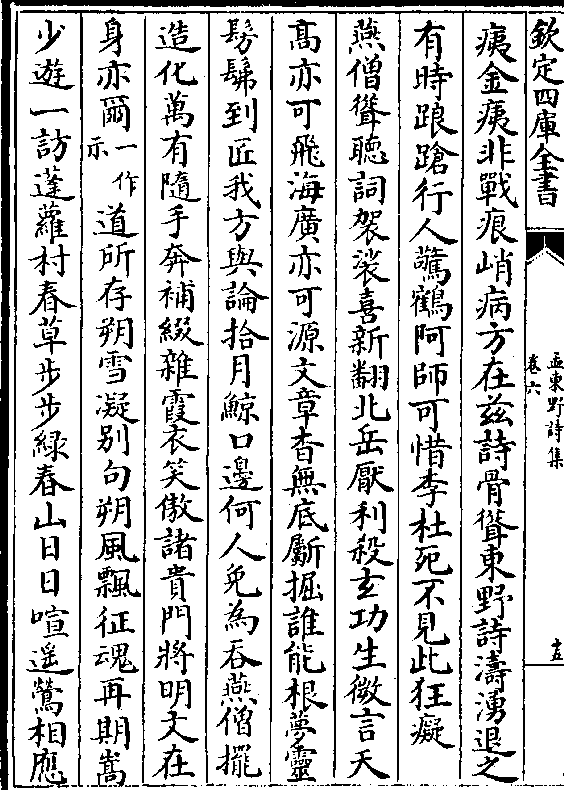 欽定四庫全書
孟東野詩集
卷六
十五
痍金痍非戰痕峭病方在兹詩骨聳東野詩濤湧退之
有時踉蹡行人驚鶴阿師可惜李杜死不見此狂癡
燕僧聳聽詞袈裟喜新翻北岳厭利殺玄功生微言天
髙亦可飛海廣亦可源文章杳無底斸掘誰能根夢靈
髣髴到匠我方與論拾月鯨口邊何人免為吞燕僧擺
造化萬有隨手奔補綴雜霞衣笑傲諸貴門將明文在
身亦爾一作示道所存朔雪凝别句朔風飄征魂再期嵩
少遊一訪蓬蘿村春草步步緑春山日日暄遥鶯相應